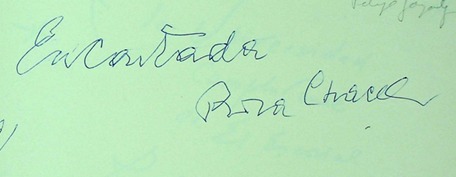 Encantada
Rosa Chacel